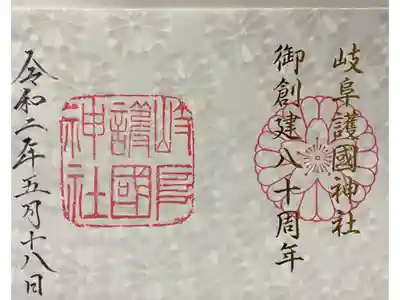 岐阜護國神社
御創建八十周年
岐阜
護國
神社
令和二年五月十八日